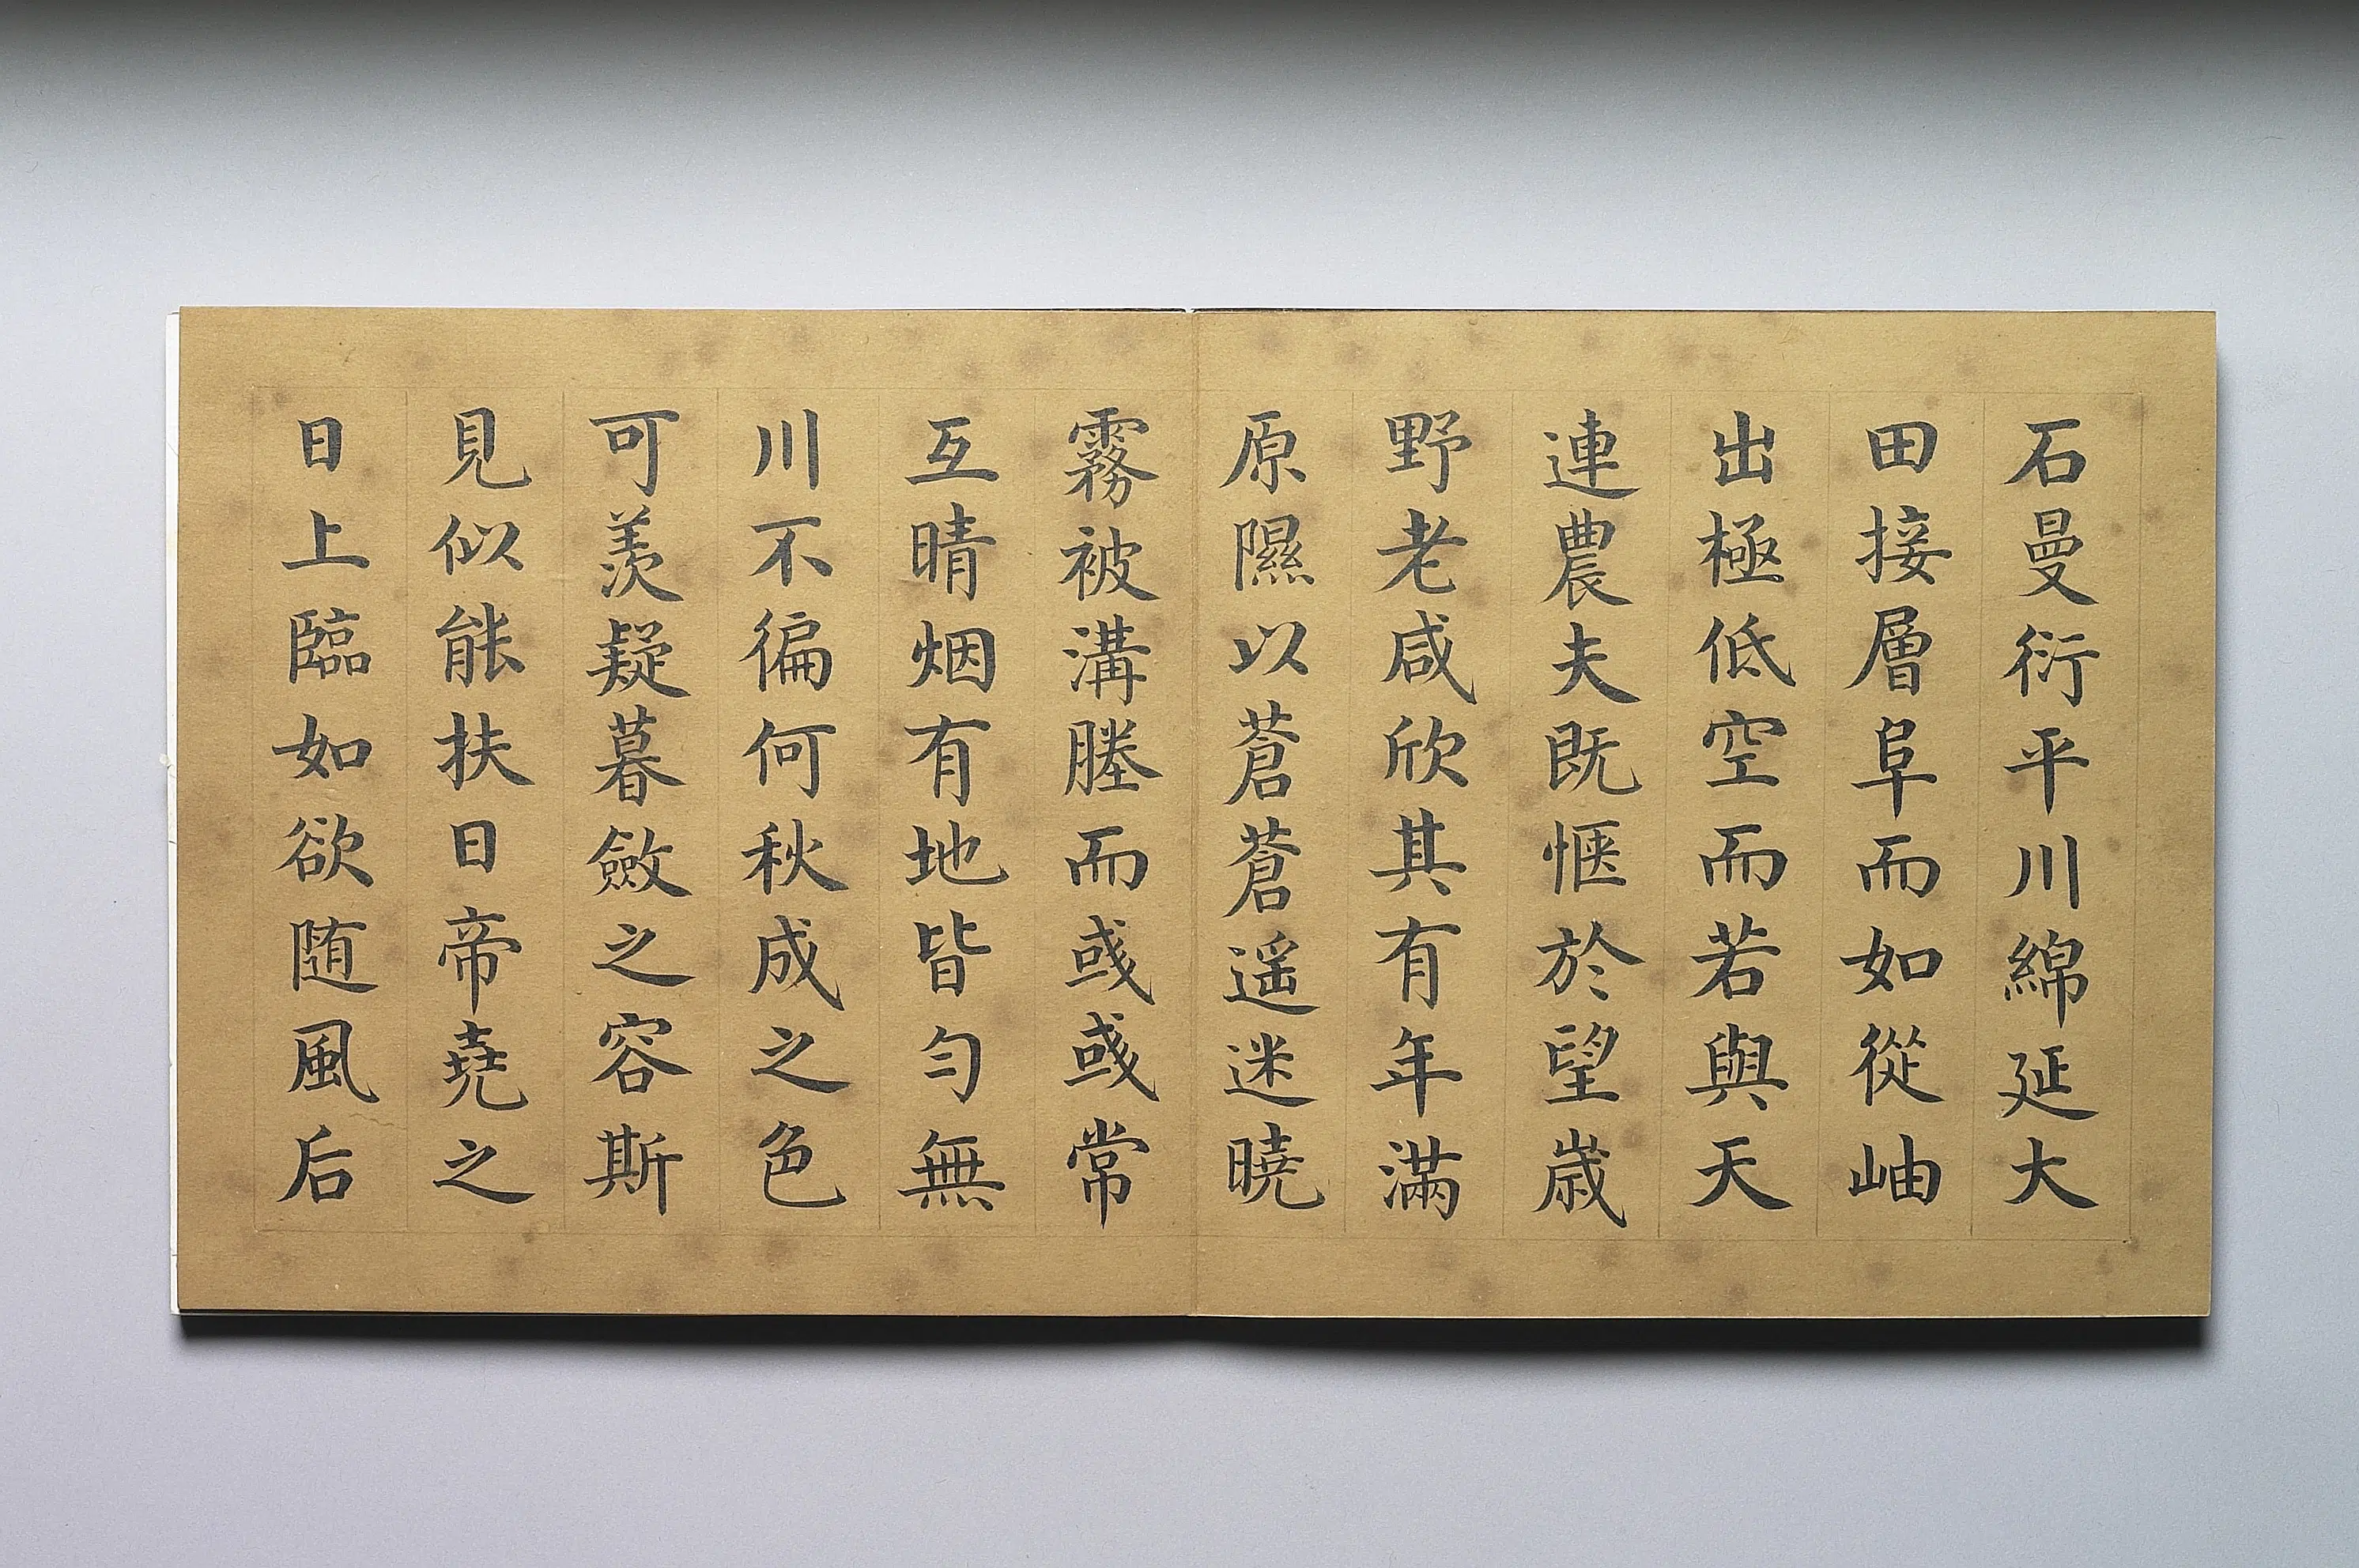 石曼衍平川綿延大
田接層阜而如從岫
出極低空而若與天
連農夫既愜於望歲
野老咸欣其有年滿
原隰以蒼蒼遥迷曉
霧被溝塍而彧彧常
互晴烟有地皆勻無
川不徧何秋成之色
可羨疑暮斂之容斯
見似能扶日帝堯之
日上臨如欲随風后